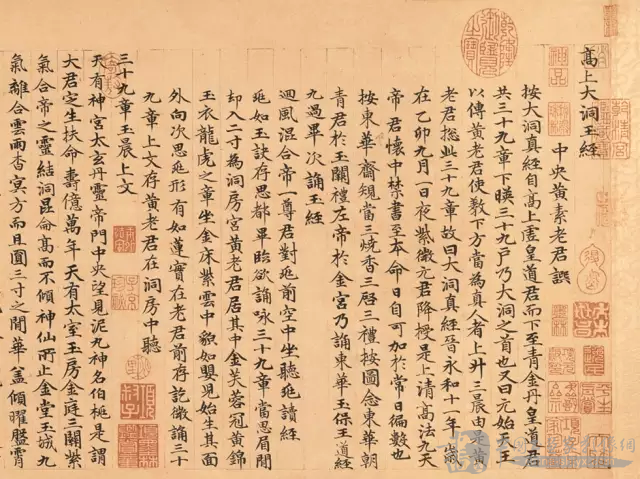 高上大洞玉經
中央黃素老君譔
按大洞真經自高上虛皇道君而下至青金丹皇道君
共三十九章下暎三十九戶乃大洞之首也又曰元始天王
以傳黃老君使教下方當為真人者上升三晨由是黃
老君總此三十九章故曰大洞真經晉永和十一年歲
在乙卯九月一日夜紫微元君降授是上清高法九天
帝君懷中禁書至本命日自可加於常日徧數也
按東華齋規當三燒香三啟三禮按圖念東華朝
青君於玉關禮左帝於金宮乃誦東華玉保王道經
九過畢次誦玉經
迴風混合帝一尊君對兆前空中坐聽兆讀經
兆如玉訣存思都畢臨欲誦詠三十九章當思眉間
却入二寸為洞房宮黃老君居其中金芙蓉冠黃錦
玉衣龍虎之章坐金床紫雲中貌如嬰兒始生其面
外向次思兆形有如蓮實在老君前存訖微誦三十
九章上文存黃老君在洞房中聽
三十九章玉晨上文
天有神宮太玄丹靈帝門中央望見泥九神名伯桓是謂
大君定生扶命壽億萬年天有太室玉房金庭三關紫
氣合帝之靈結洞昆侖高而不傾神仙所止金堂玉城九
氣離合雲雨杳冥方而且圓三寸之間華蓋傾曜鬱霄
神品